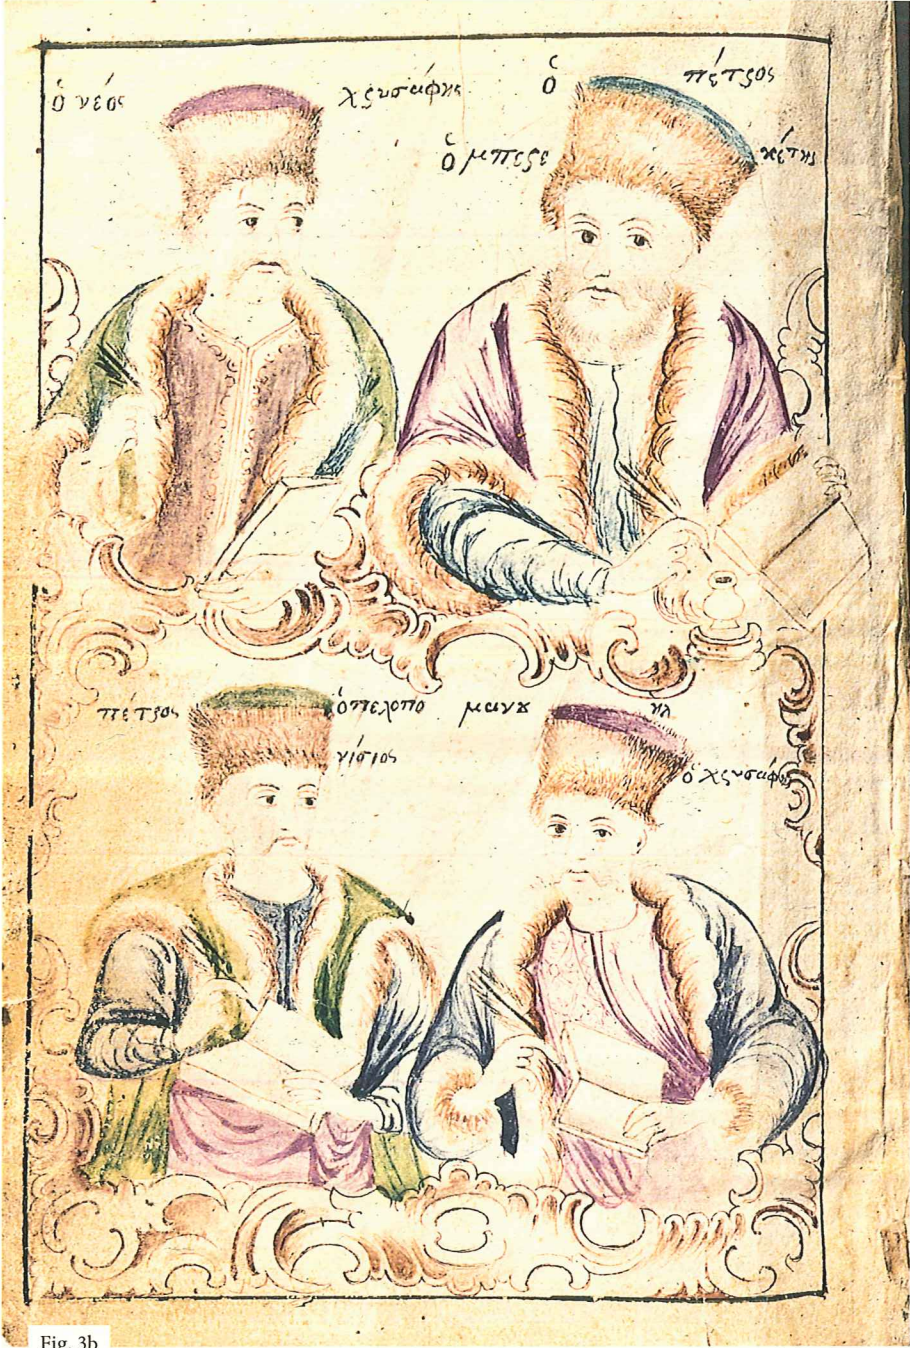 ὁ νέος χρυσάφης
ὁ πέτρος
ὁ μπερεκέτης
πέτρος ὁ πελοπο
νίσιος
μανȣηλ
ὁ χρυσάφης
Fig. 3b